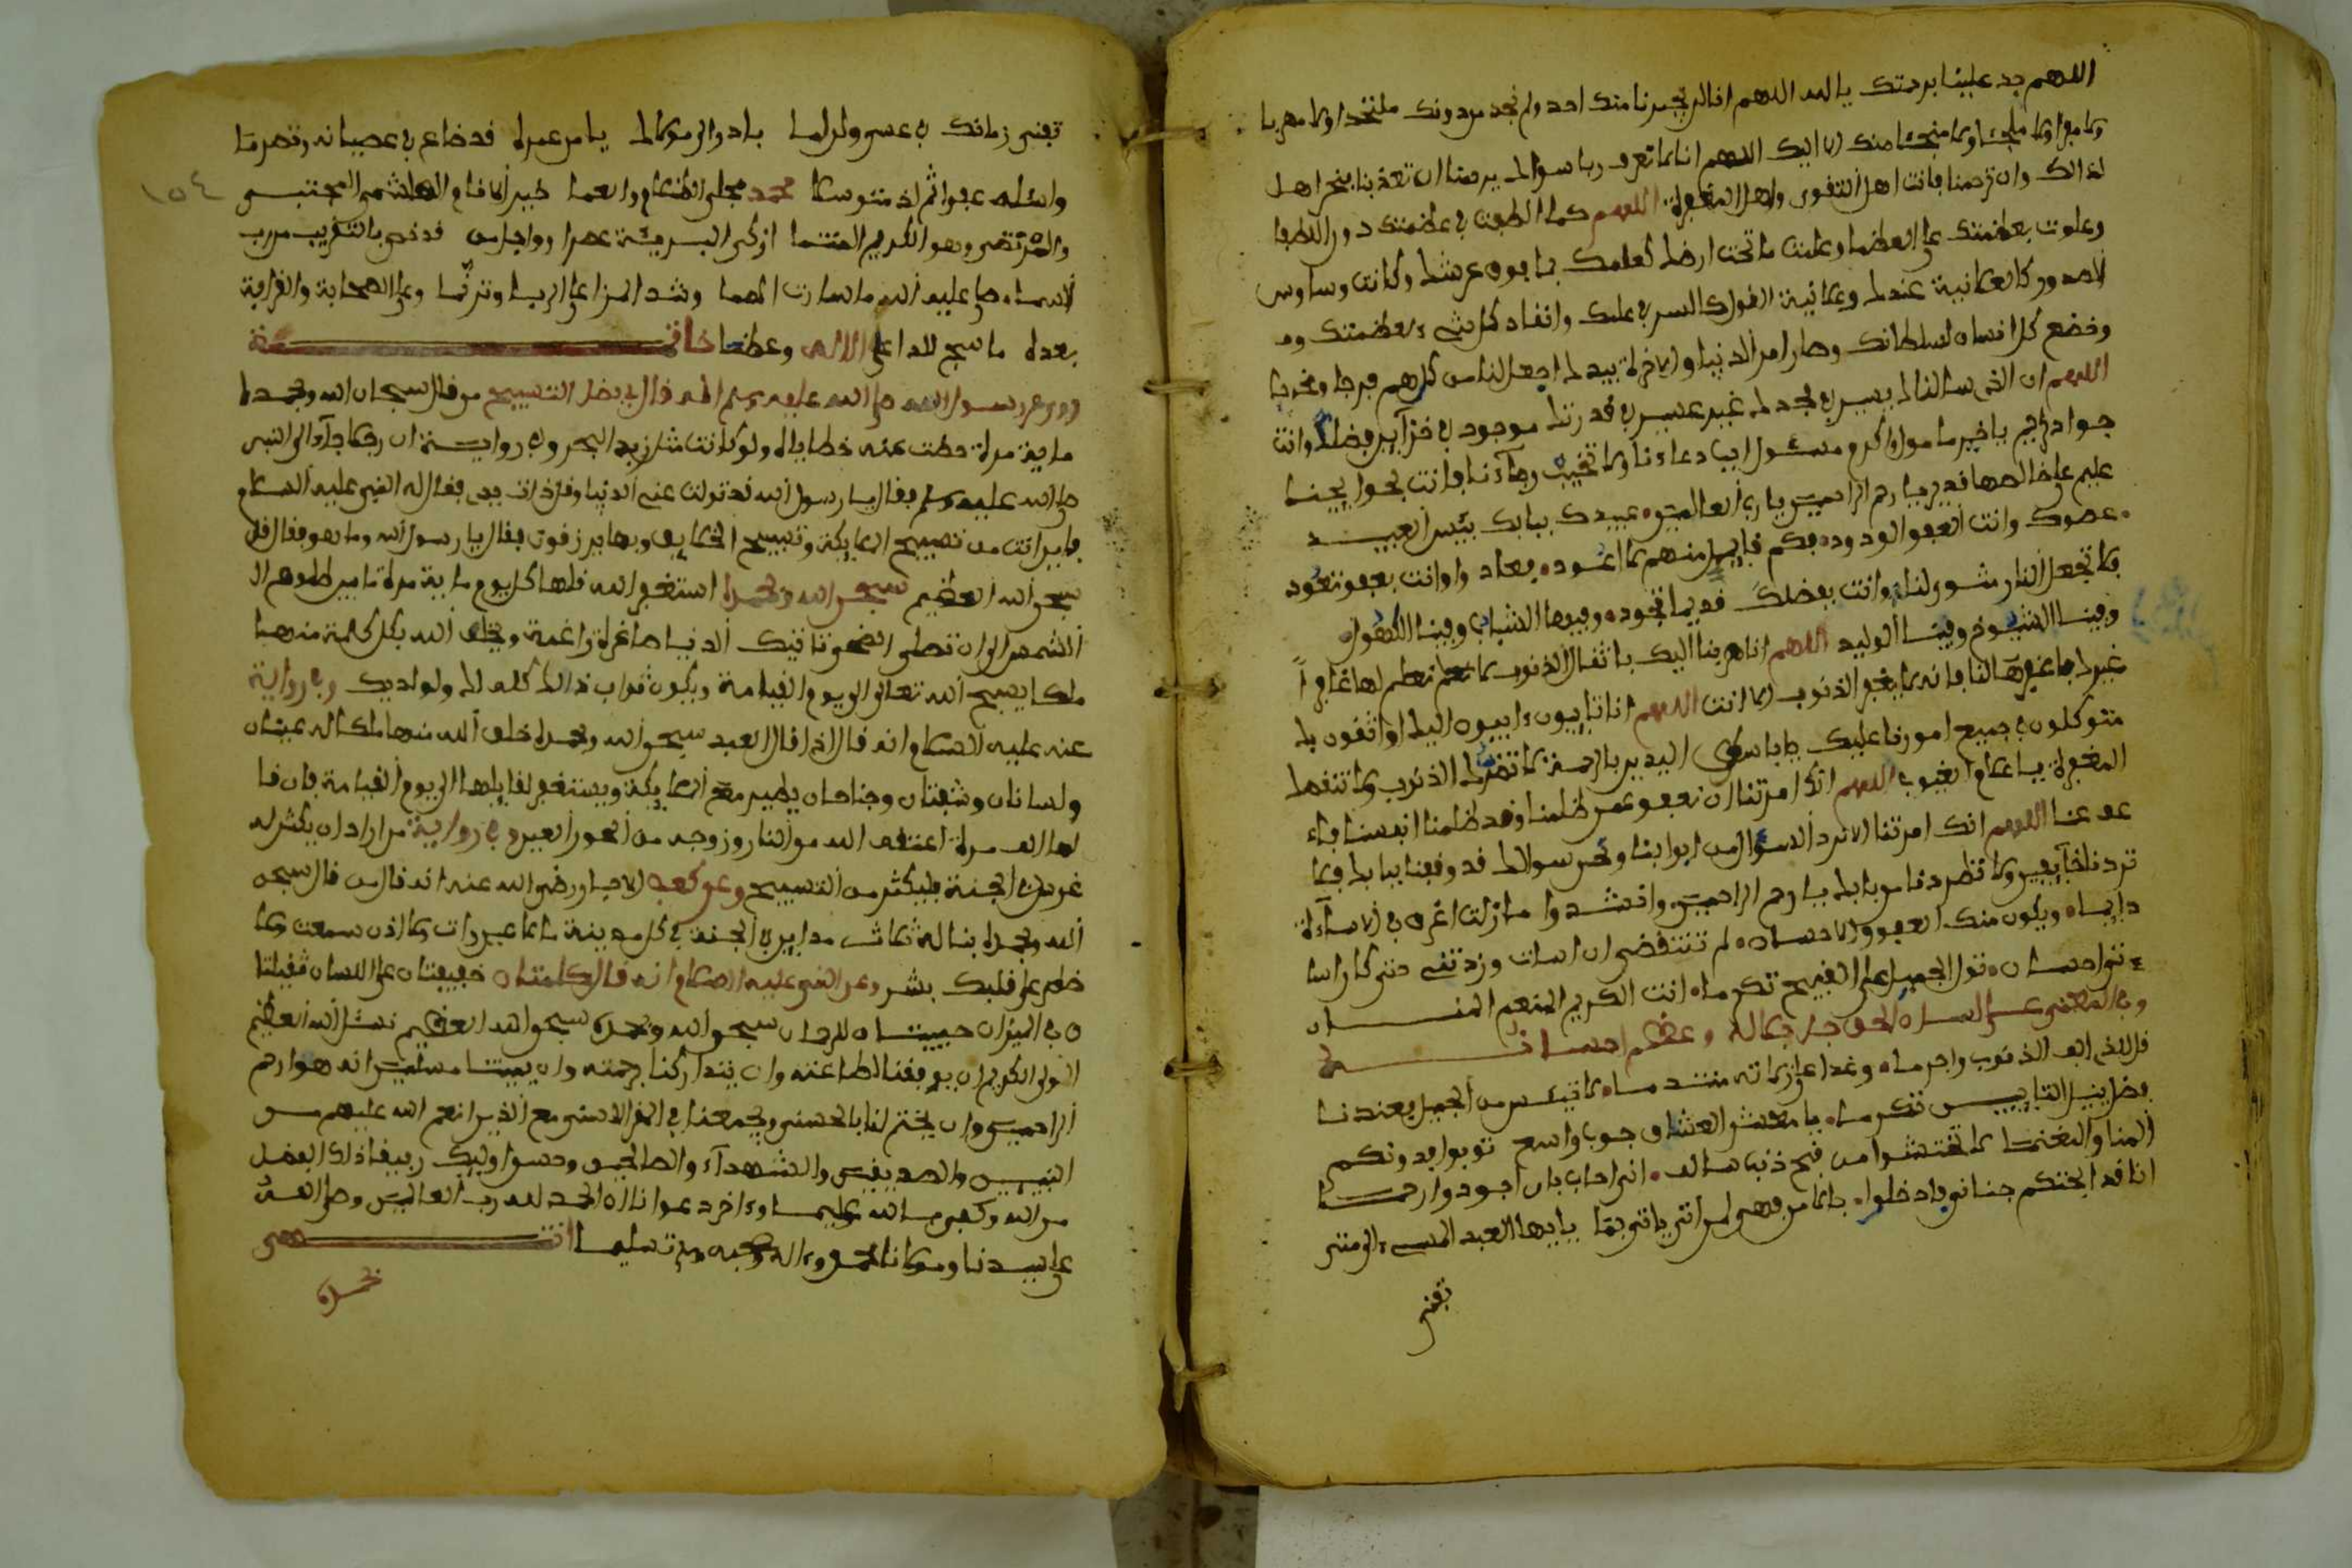 اللهم جد علينا برحمتك يا الله اللهم انا لن يجيرنا منك احد ولم نجد من دونك ملتحدا ولا مهربا
ولا مفرا ولا ملجئا ولا منجئا منك الا اليك اللهم انا لا نعرف ربا سواك يرحمنا ان تعذبنا فنحن اهل
لذالك وان ترحمنا فانت اهل التقوى واهل المغفرة اللهم كما الطفت في عظمتك دون اللطفا
وعلوت بعظمتك على العظما وعلمت ما تحت ارضك كعلمك بما فوق عرشك وكانت وساوس
الصدور كالعلانية عندك وعلانية القول كالسر في علمك وانقاد كل شيء لعظمتك
وخضع كل انسان لسلطانك وصار امر الدنيا والاخرة بيدك اجعل لنا من كل هم فرجا ومخرجا
اللهم ان الذي سالناك يسير في مجدك غير عسير في قدرتك موجود في خزاين فضلك وانت
جواد كريم يا خير مامول واكرم مسئول اجب دعاءنا ولا تخيب رجآءنا فانت بحوايجنا
عليم وعلى قضائها قدير يا ارحم الراحمين يا رب العالمين عبيدك ببابك بئس العبيد
عصوك وانت العفو الودود فكم قايل منهم لا اعود فعاد وانت بعفو تعود
فلا تجعل النار مثوى لنا وانت بفضلك قديما تجود وفينا الشباب وفينا الكهول
وفينا الشيوخ وفينا الوليد اللهم انا هربنا اليك باثقال الذنوب لا نعلم لها غافرا
غيرك فاغفرها لنا فانه لا يغفر الذنوب الا انت اللهم انا تايبون ءايبون اليك واثقون بك
متوكلون في جميع امورنا عليك يا باسط اليدين بالرحمة لا تضرك الذنوب ولا تنقصك
المغفرة يا علام الغيوب اللهم انك امرتنا ان نعفو عمن ظلمنا وقد ظلمنا انفسنا فاء
عف عنا اللهم انك امرتنا الا نرد السؤال من ابوابنا ونحن سوالك قد وقفنا ببابك فلا
تردنا خآيبين ولا تطردنا من بابك يا ارحم الراحمين وانشدوا ما زلت اغرق في الاسآءة
دايما ويكون منك العفو والاحسان لم تنتقصني ان اسات وزدتني حتى كان اسا
ءتي احسان تولي الجميل على القبيح تكرما انت الكريم المنعم المنان
وفي المعنى عن لسان الحق جل جلاله وعظم احسانه
قل للذي الف الذنوب واجرما وغدا على زلاته متندما لا تيئسن من الجميل فعندنا
فضل ينيل التايبين تكرما يا معشر العشاق جودي واسع توبوا فدونكم
المنا والمغنما لا تختشوا من قبح ذنب سالف اني احب بان اجود وارحما
انا قد ابحتكم جناني فادخلوا بالامن فهي لمن اتى ياتي بما يا ايها العبد المسيء الى متى
تفني
تفني زمانك في عسى ولربما بادر الى مولاك يا من عمره قد ضاع في عصيانه وتصرما
واسئله عفوا ثم اذ متوسلا محمد مجلي الظلام والعما خير الانام الهاشمي المجتبى ١٥٤
والمرتضى وهو الكريم المنتما ازكى البرية عنصرا قد خص بالتقريب من رب
السما صلى عليه الله ما سارت وشد الى الربا وترنما وعلى الصحابة والقرابة
بعده ما سبح للداعي الاله وعظما خاتمة
روي عن رسول الله صلى الله عليه وسلم انه قال في فضل التسبيح من قال سبحان الله وبحمده
ماية مرة حطت عنه خطاياه ولو كانت مثل زبد البحر وفي رواية ان رجلا جآء الى النبي
صلى الله عليه وسلم فقال يا رسول الله قد تولت عني الدنيا وقل ذات يدي فقال له النبي عليه السلام
فاين انت من تسبيح الملايكة وتسبيح الخلايق وبها يرزقون فقال يا رسول الله وما هو فقال قل
سبحن الله العظيم سبحن الله وبحمده استغفر الله قلها كل يوم ماية مرة ما بين طلوع
الشمس الى ان تصلي الضحى تاتيك الدنيا صاغرة راغمة ويخلق الله بكل كلمة منها
ملكا يسبح الله تعالى الى يوم القيامة ويكون ثواب ذالك كله لك ولوالديك وفي رواية
عنه عليه السلام انه قال اذا قال العبد سبحن الله وبحمده خلق الله منها ملكا له عينان
ولسانان وشفتان وجناحان يطير مع الملايكة ويستغفر لقايلها الى يوم القيامة فان قا
لها الف مرة اعتقه الله من النار وزوجه من الحور العين وفي رواية من اراد ان يكثر له
غرس الجنة فليكثر من التسبيح وعن كعب الاحبار رضي الله عنه انه قال من قال سبحن
الله وبحمده بنا له ثلاث مداين في الجنة في كل مدينة ما لا عين رات ولا اذن سمعت ولا
خطر على قلب بشر وعن النبي عليه السلام انه قال كلمتان خفيفتان على اللسان ثقيلتا
ن في الميزان حبيبتان للرحمان سبحن الله وبحمده سبحن الله العظيم نسئل الله العظيم
المولى الكريم ان يوفقنا لطاعته وان يتداركنا برحمته وان يميتنا مسلمين انه هو ارحم
الراحمين وان يختم لنا بالحسنى ويجمعنا في المقر الاسنى مع الذين انعم الله عليهم من
النبيين والصديقين والشهدآء والصالحين وحسن اوليك رفيقا ذلك الفضل
من الله وكفى بالله عليما وءاخر دعوانا ان الحمد لله رب العالمين وصلى الله
على سيدنا ومولانا محمد وءاله وصحبه وسلم تسليما انتهى